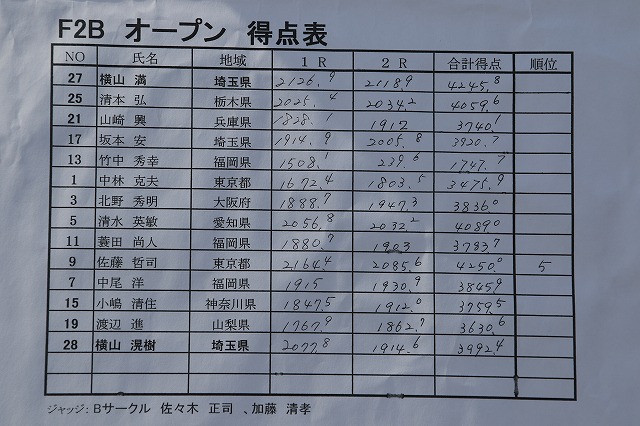 F2B オープン 得点表
NO 氏名 地域 1 R 2 R 合計得点 順位
27 横山 満 埼玉県 2126.9 2118.9 4245.8
25 清本 弘 栃木県 2025.4 2034.2 4059.6
21 山崎 興 兵庫県 1828.1 1912 3740.1
17 坂本 安 埼玉県 1914.9 2005.8 3920.7
13 竹中 秀幸 福岡県 1508.1 239.6 1747.7
1 中林 克夫 東京都 1672.4 1803.5 3475.9
3 北野 秀明 大阪府 1888.7 1947.3 3836.0
5 清水 英敏 愛知県 2056.8 2032.2 4089.0
11 蓑田 尚人 福岡県 1880.7 1903 3783.7
9 佐藤 哲司 東京都 2164.4 2085.6 4250.0 5
7 中尾 洋 福岡県 1915 1930.9 3845.9
15 小嶋 清住 神奈川県 1847.5 1912.0 3759.5
19 渡辺 進 山梨県 1767.9 1862.7 3630.6
28 横山 滉樹 埼玉県 2077.8 1914.6 3992.4
ジャッジ： Bサークル 佐々木 正司 、加藤 清孝